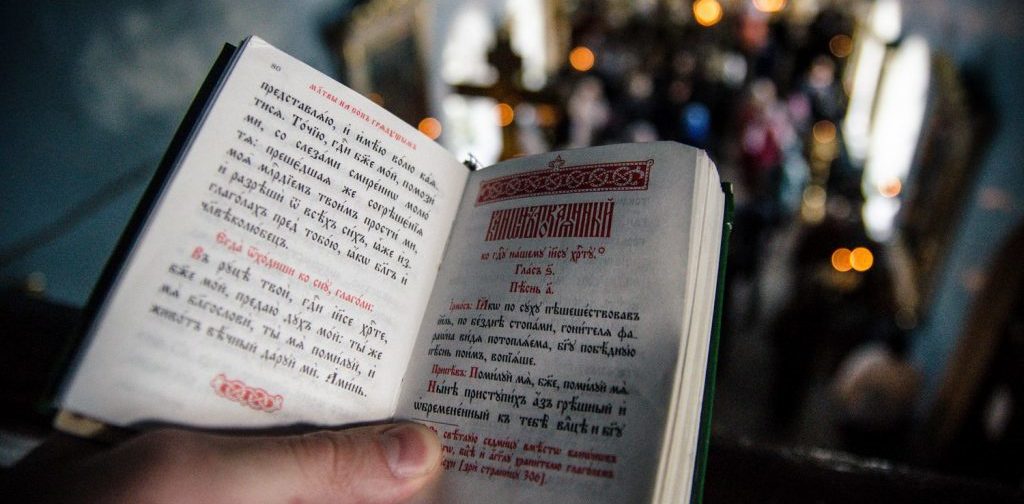 80
МЛ҃твы на сонъ грѧдꙋщымъ
представлѧ́ю, и҆ и҆мѣ́ю во́лю ка́ѧ-
тисѧ. То́чїю, гдⷭ҇и бж҃е мо́й, помози́
ми, со слеза́ми смире́ннѡ молю́
тѧ: преше́дшаѧ же согрѣшє́нїѧ
моѧ̑ млⷭ҇рдїемъ твои́мъ прости́ ми,
и҆ разрѣши́ ѿ всѣ́хъ си́хъ, ꙗ҆̀же и҆з-
глаго́лахъ пред̾ тобо́ю, ꙗ҆́кѡ бл҃гъ и҆
чл҃вѣколю́бецъ.
Є҆гда̀ ѿхо́диши ко снꙋ̀, глаго́ли:
Въ рꙋ́цѣ твои̑, гдⷭ҇и і҆и҃се хрⷭ҇тѐ,
бж҃е мо́й, предаю̀ дꙋ́хъ мо́й: ты́ же
мѧ̀ блг҃ословѝ, ты́ мѧ поми́лꙋй, и҆
живо́тъ вѣ́чный да́рꙋй мѝ. А҆ми́нь.
Канѡ́нъ покаѧ́нный
ко гдⷭ҇ꙋ на́шемꙋ і҆и҃сꙋ хрⷭ҇тꙋ̀.
Гла́съ ѕ҃.
Пѣ́снь а҃.
І҆рмо́съ: Ꙗ҆́кѡ по сꙋ́хꙋ пѣшеше́ствовавъ
і҆и҃ль, по бе́зднѣ стопа́ми, гони́телѧ фа-
раѡ́на ви́дѧ потоплѧ́ема, бг҃ꙋ побѣ́днꙋю
пѣ́снь пои́мъ, вопїѧ́ше.
Припѣ́въ: Поми́лꙋй мѧ̀, бж҃е, поми́лꙋй мѧ̀.
Ны́нѣ пристꙋпи́хъ а҆́зъ грѣ́шный и҆
ѡ҆бремене́нный къ тебѣ̀ влⷣцѣ и҆ бг҃ꙋ
свѣ́тлꙋю седми́цꙋ вмѣ́стѡ канѡ́нѡвъ
бц҃ѣ и҆ а҆́гг҃лꙋ храни́телю глаго́лемъ
[зрѝ страни́цꙋ 306].